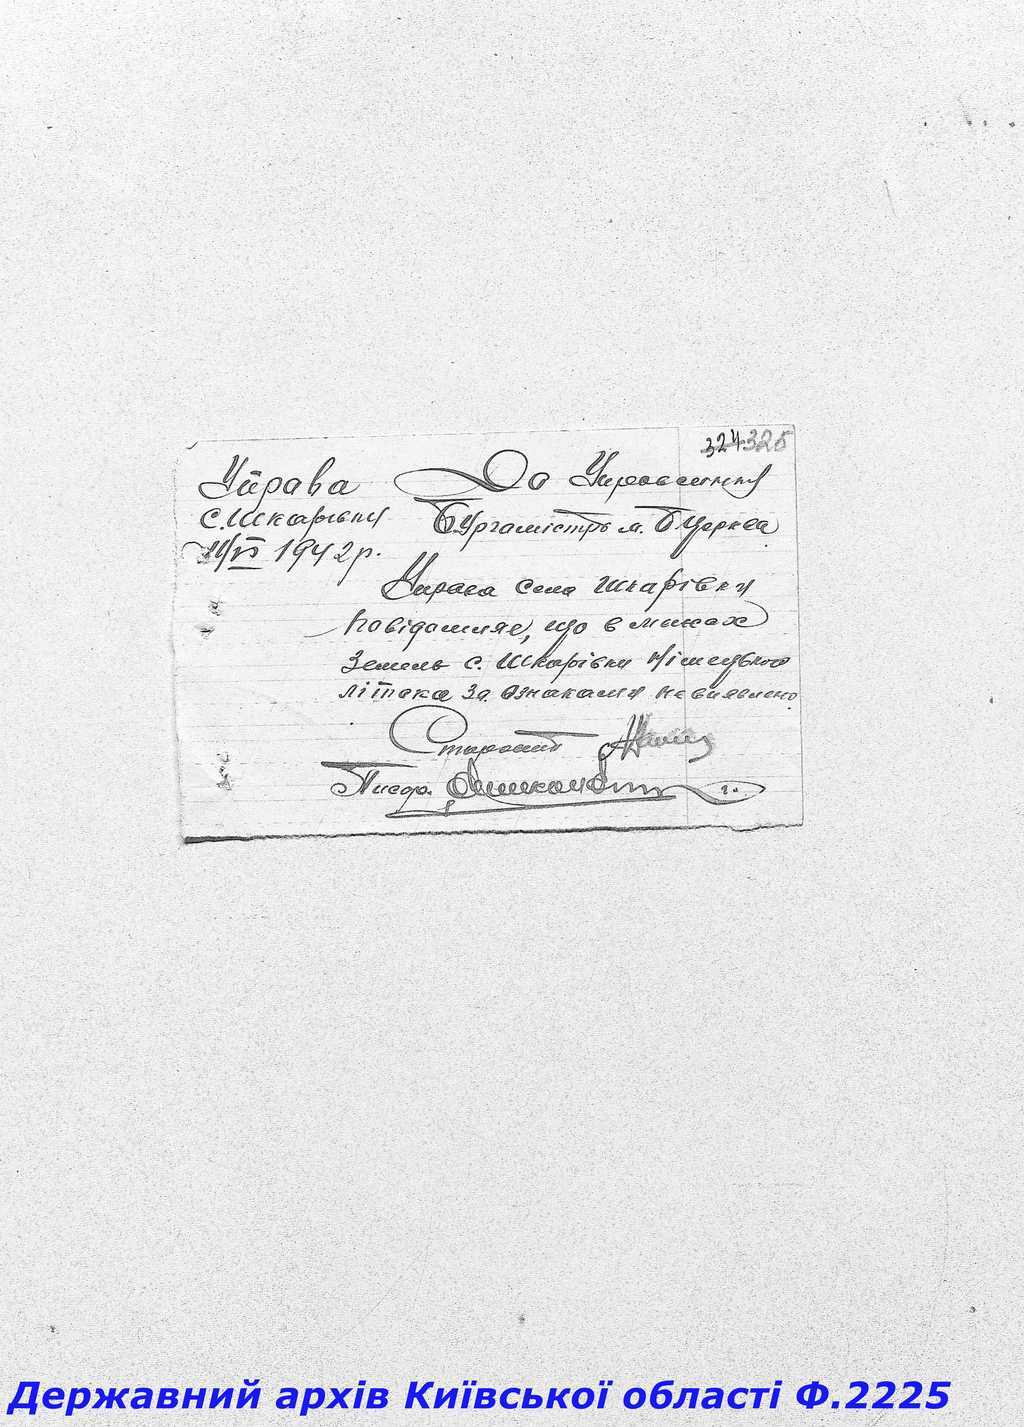 324 325
Управа
с. Шкарівки
VI 1942 р.
До Управління
Бургамістра м. Б Церква
Управа села Шкарівки
повідомляє, що в межах
земель с. Шкарівки німецького
літака за ознаками не виявлено
Староста
Писар
Державний архів Київської області Ф.2225